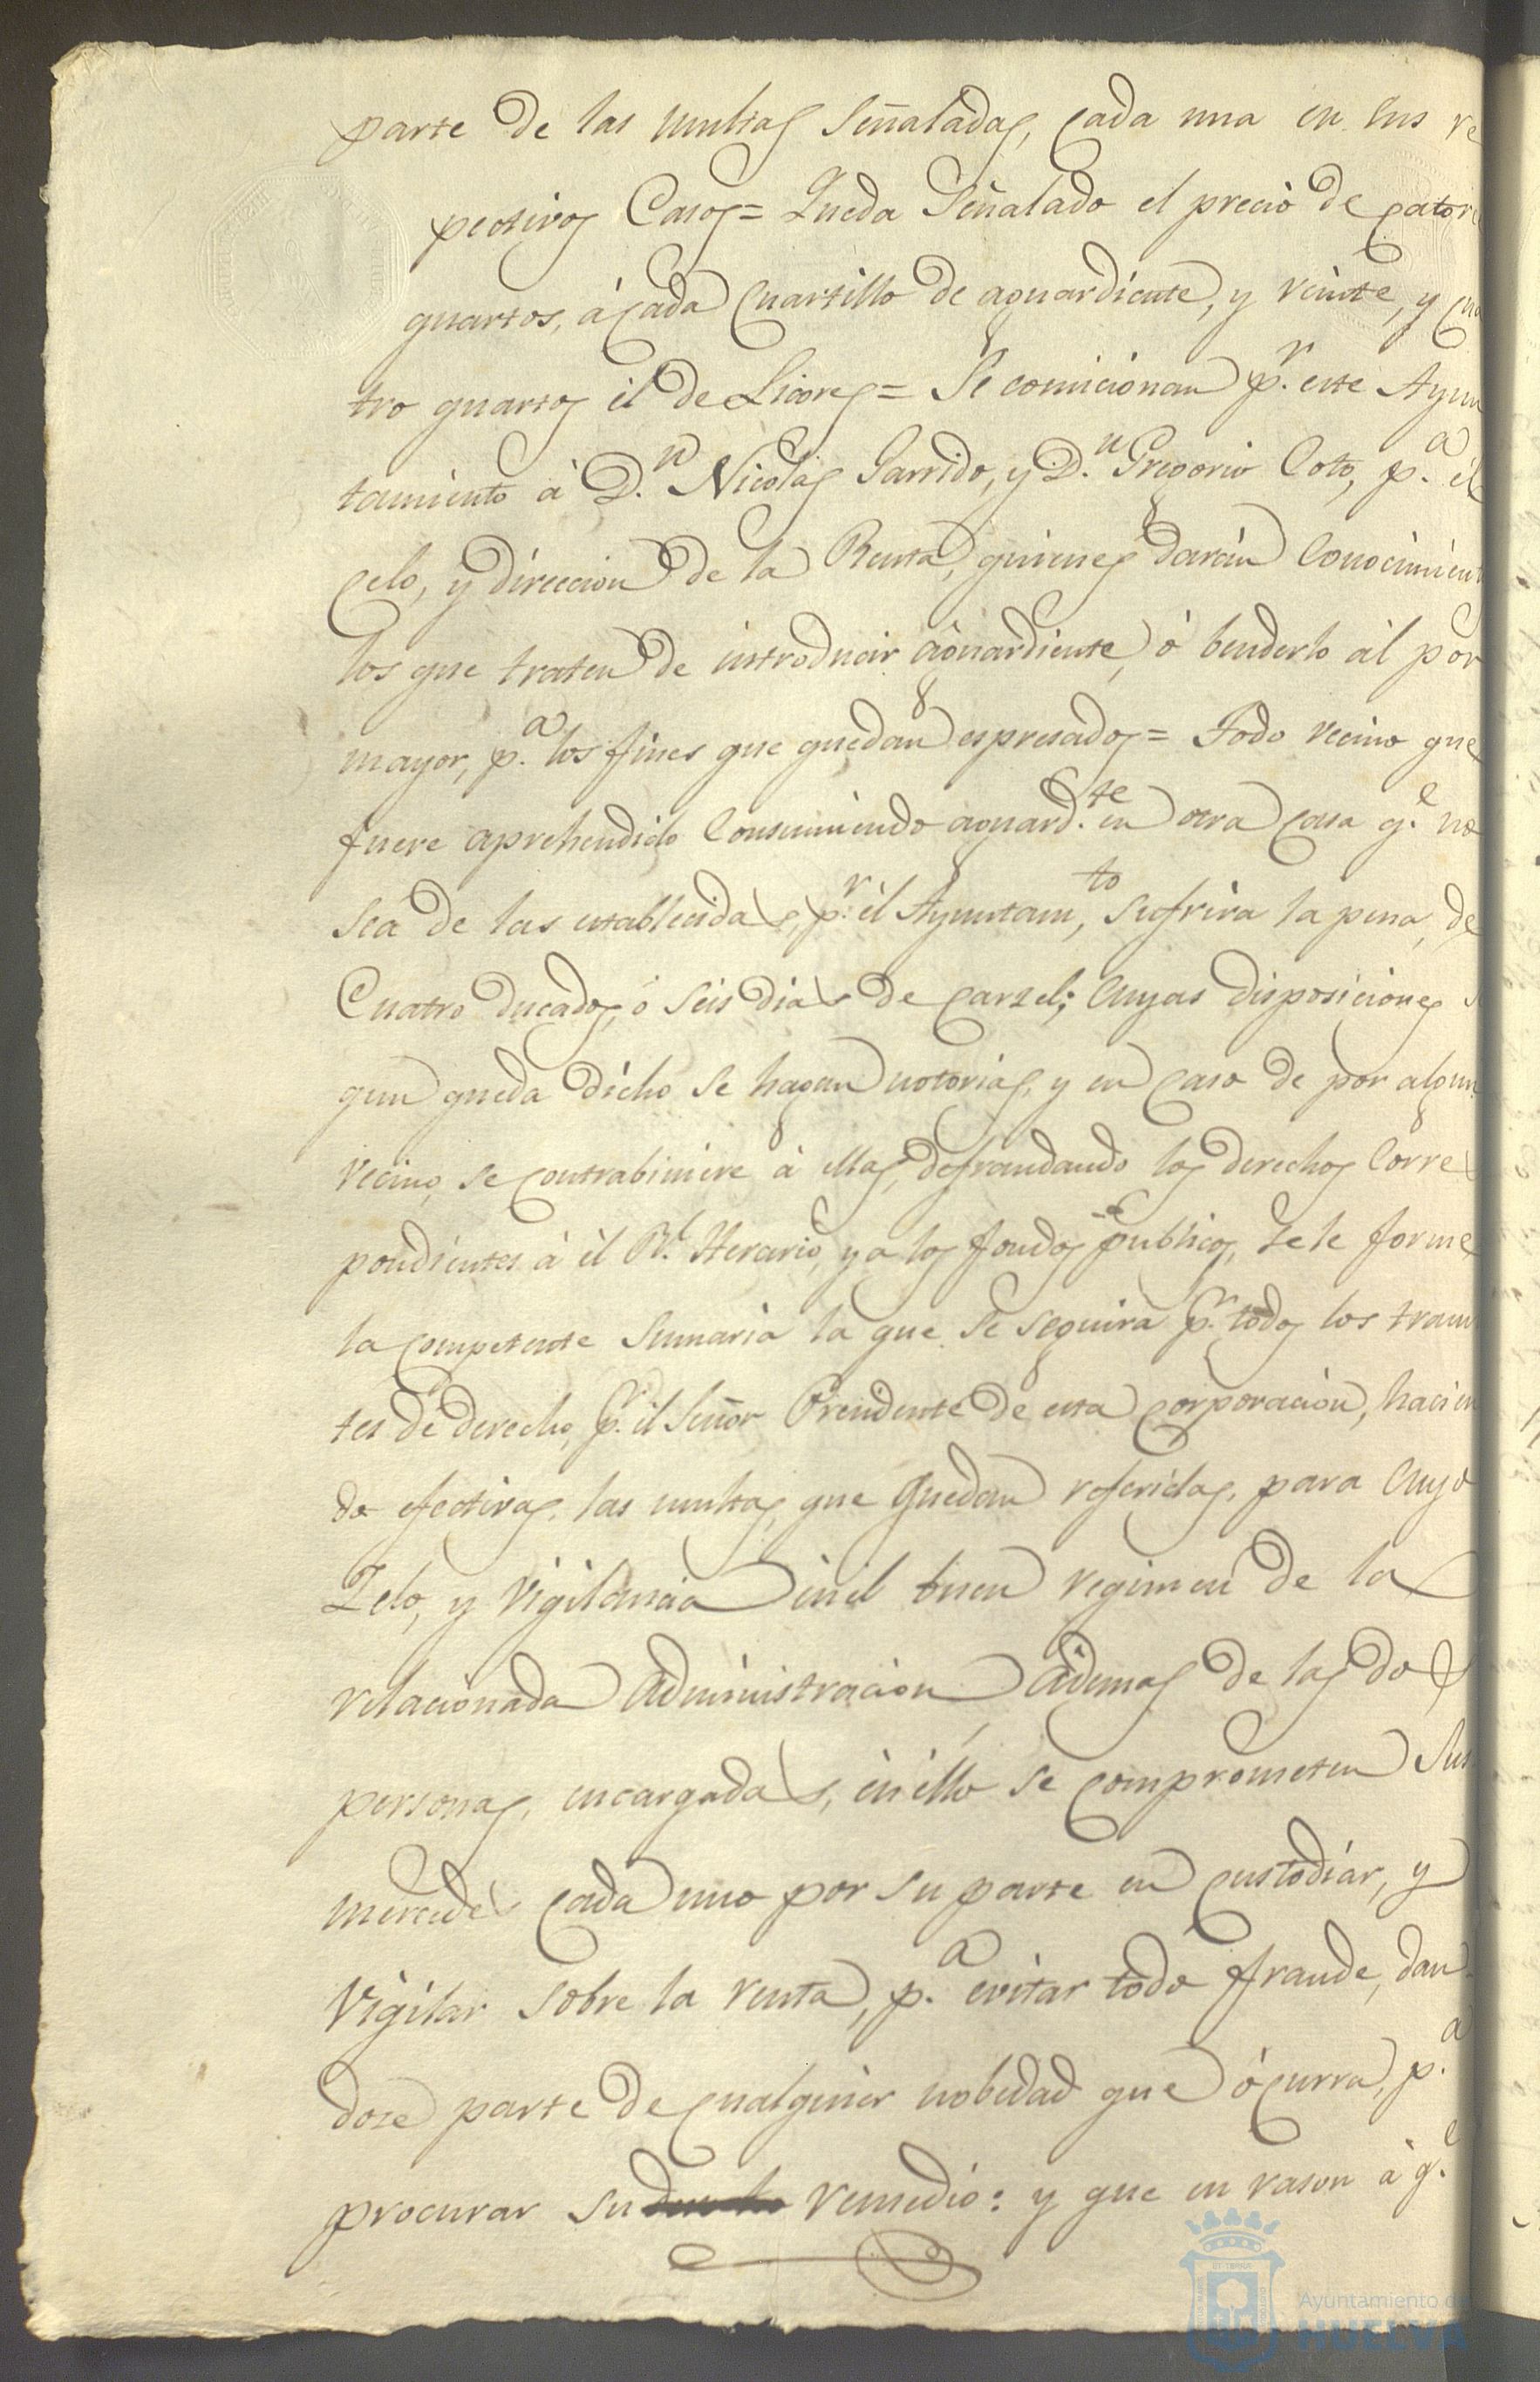 parte de las multas señaladas, cada una en sus re
pectivos Casos = Queda señalado el precio de cator
quartos, á cada Cuartillo de aguardiente, y veinte, y cua
tro quartos él de Licores = Se comicionan p.r este Ayun
tamiento á D.n Nicolas Garrido, y D.n Gregorio Coto, p.a él
celo, y direccion de la Renta, quienes daràn Conocimient
los que traten de introducir àguardiente, ó benderlo àl por
mayor, p.a los fines que quedan espresados = Todo vecino que
fuere aprehendido Consumiendo aguard.te en otra casa q.e no
seá de las establecidas, p.r él Ayuntam.to, sufrira la pena, de
Cuatro ducados, ó seis dias de carzel; Cuyas disposiciones s
gun queda dicho se hagan notorias, y en caso de por algun
vecino, se contrabiniere á ellas, defraudando los derechos Corres
pondientes á él R.l Herario, y a los fondos publicos, se le forme
la competente sumaria la que se seguira p.r todos los trami
tes de derecho, p.r él Señor Presidente de esta corporacion, hacien
do efectivas, las multas, que quedan referidas, para Cuyo
Zelo, y Vigilancia en él buen regimen de la
relacionada Administracion, àdemas de las dos
personas, encargadas, en éllo se comprometen Sus
mercedes cada uno por su parte en custodiar, y
Vigilar sobre la renta, p.a evitar todo fraude, dan
dose parte de cualquier nobedad que ócurra, p.a
procurar su remedio: y que en rason á q.e
Ayuntamiento de
HUELVA